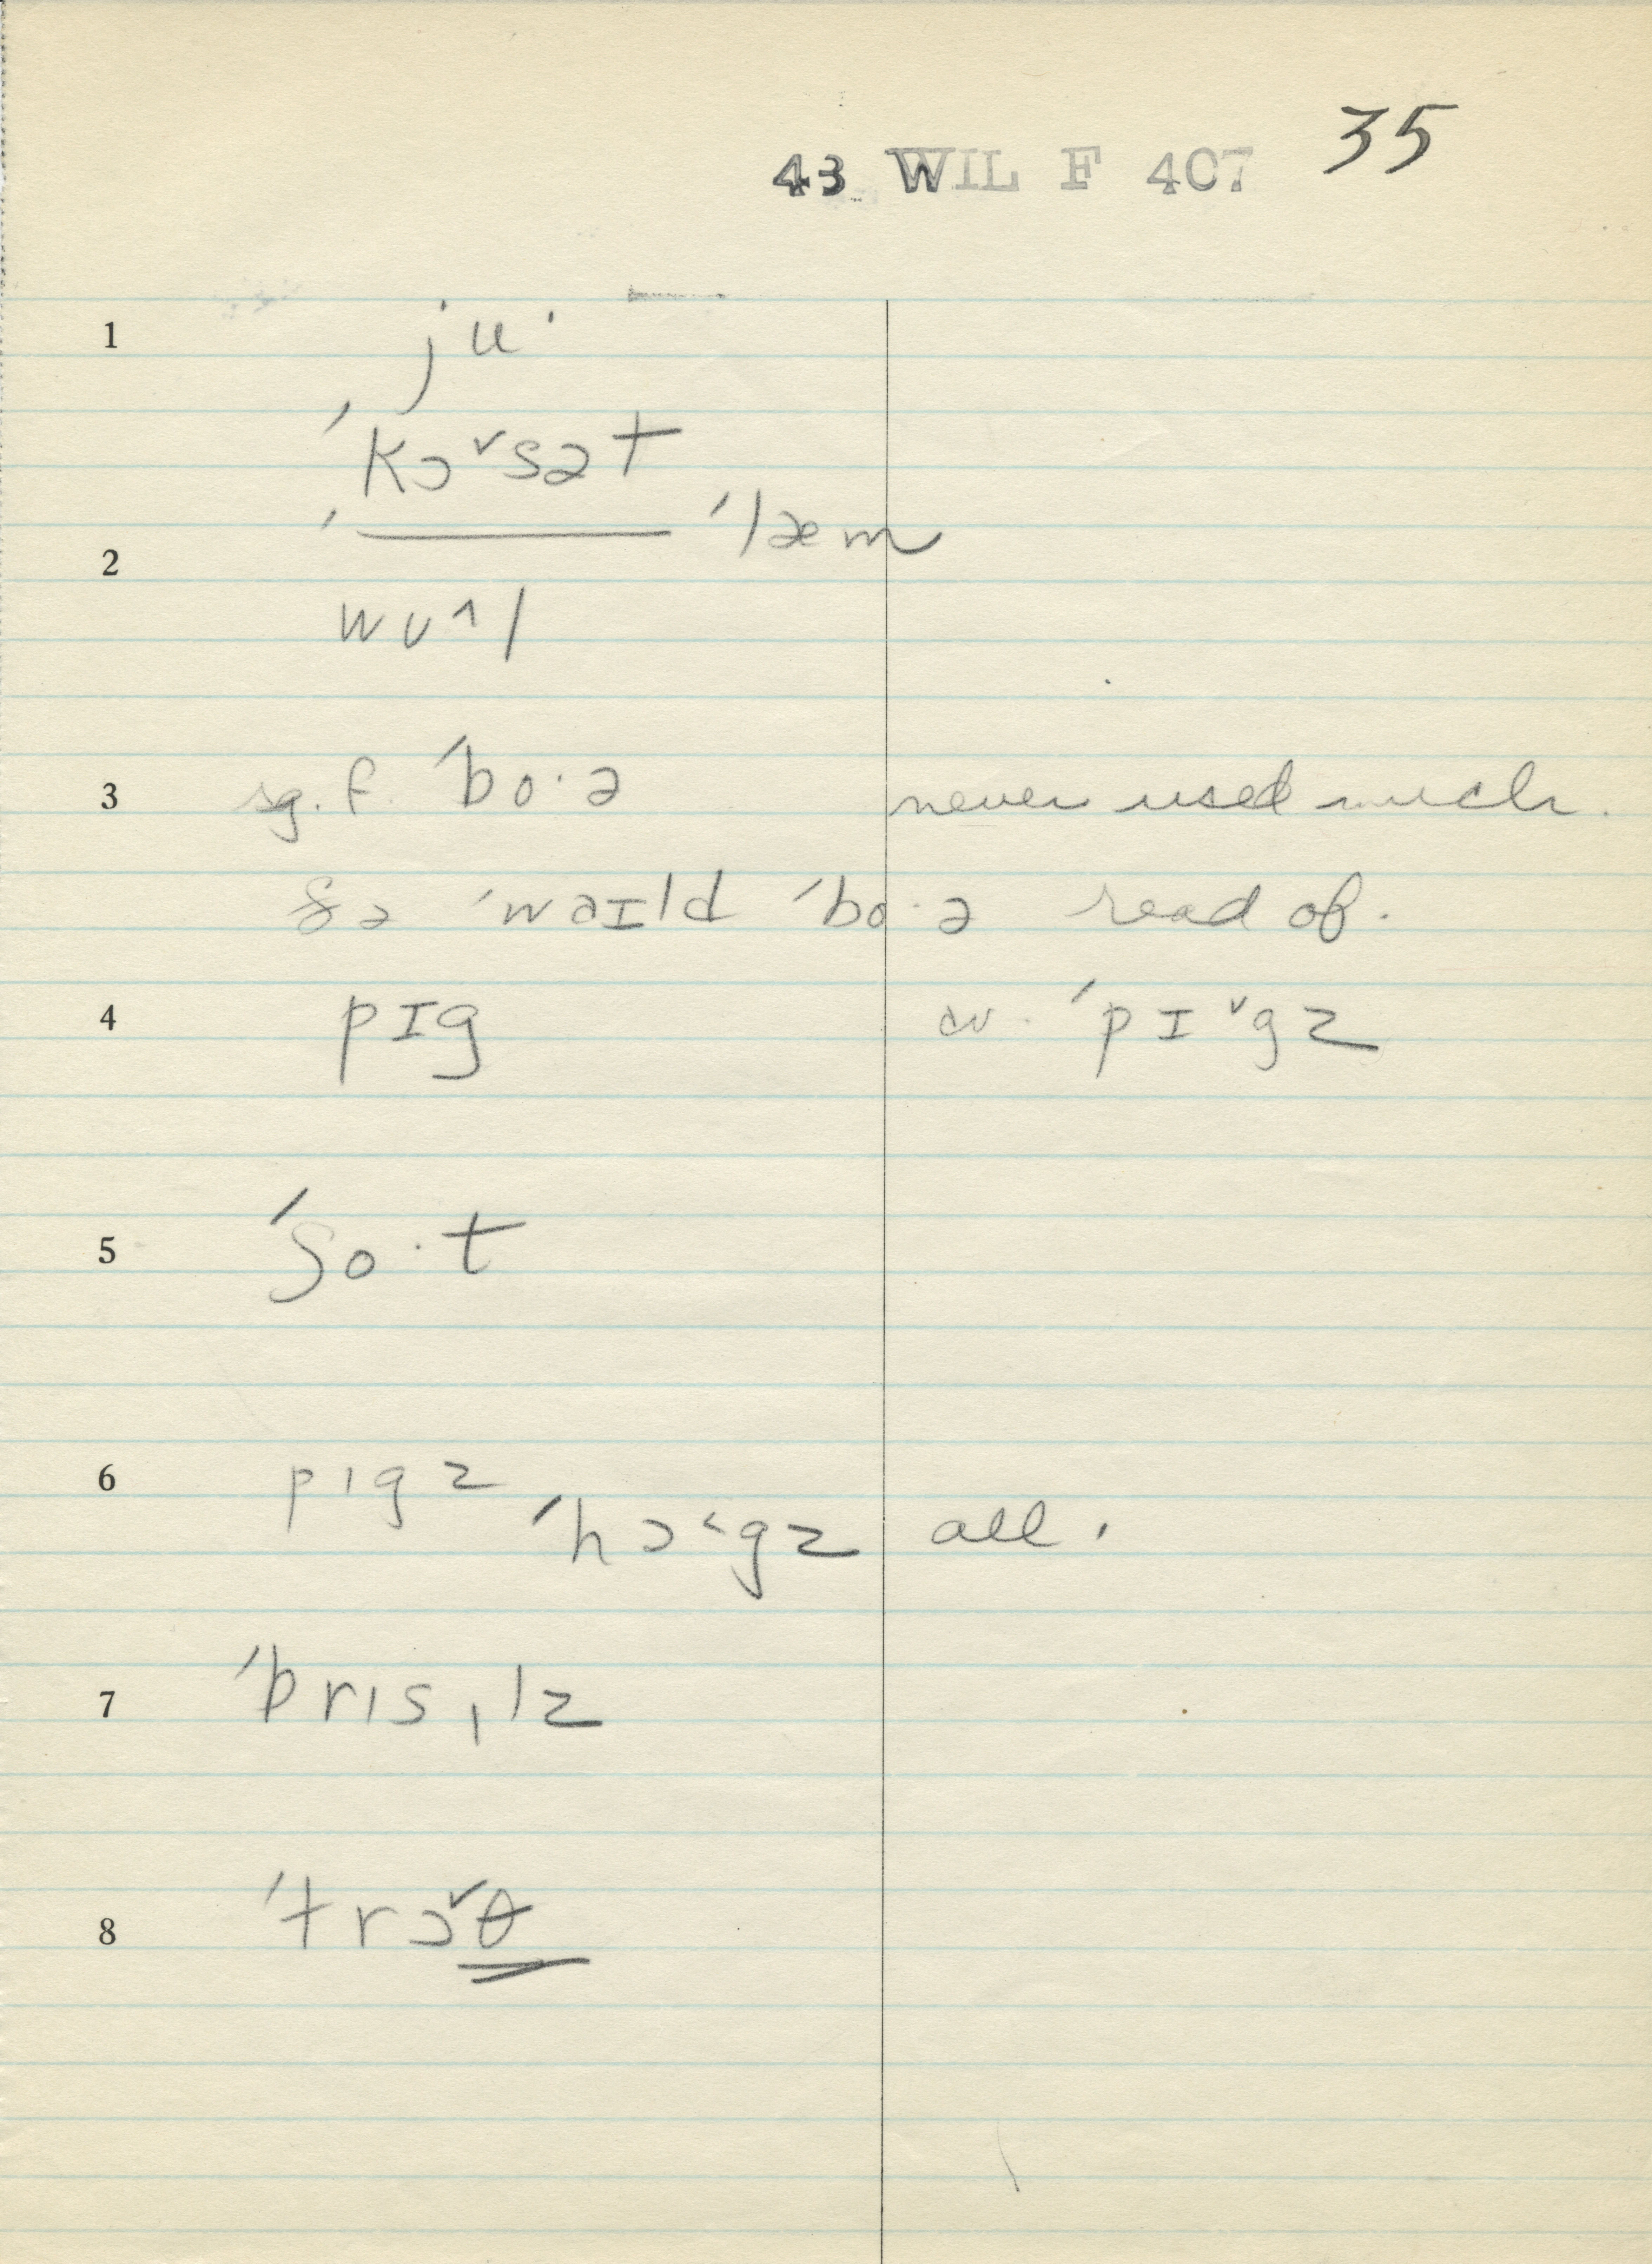 35
43 WIL F 407
1 ju·
ˈkɔ˅sət
2 ˈ______ ˈlæm
wʊ^l
3 sg. f. ˈbo·ə never used much.
ðə ˈwaɪld ˈbo·ə read of.
4 pɪg cv. ˈpɪ˅gz
5 ˈʃo·t
6 pɪgz
ˈhɔ˂gz all.
7 ˈbrɪsl̩z
8 ˈtrɔ˅θ